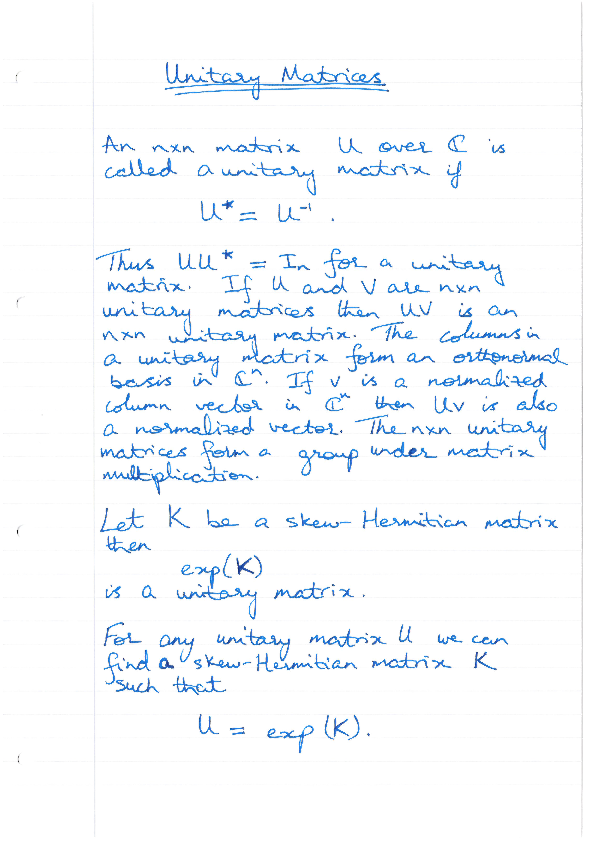 Unitary Matrices
An nxn matrix U over ℂ is
called a unitary matrix if
U* = U⁻¹.
Thus UU* = In for a unitary
matrix. If U and V are nxn
unitary matrices then UV is an
nxn unitary matrix. The columns in
a unitary matrix form an orthonormal
basis in ℂⁿ. If v is a normalized
column vector in ℂⁿ then Uv is also
a normalized vector. The nxn unitary
matrices form a group under matrix
multiplication.
Let K be a skew-Hermitian matrix
then
exp(K)
is a unitary matrix.
For any unitary matrix U we can
find a skew-Hermitian matrix K
such that
U = exp(K).